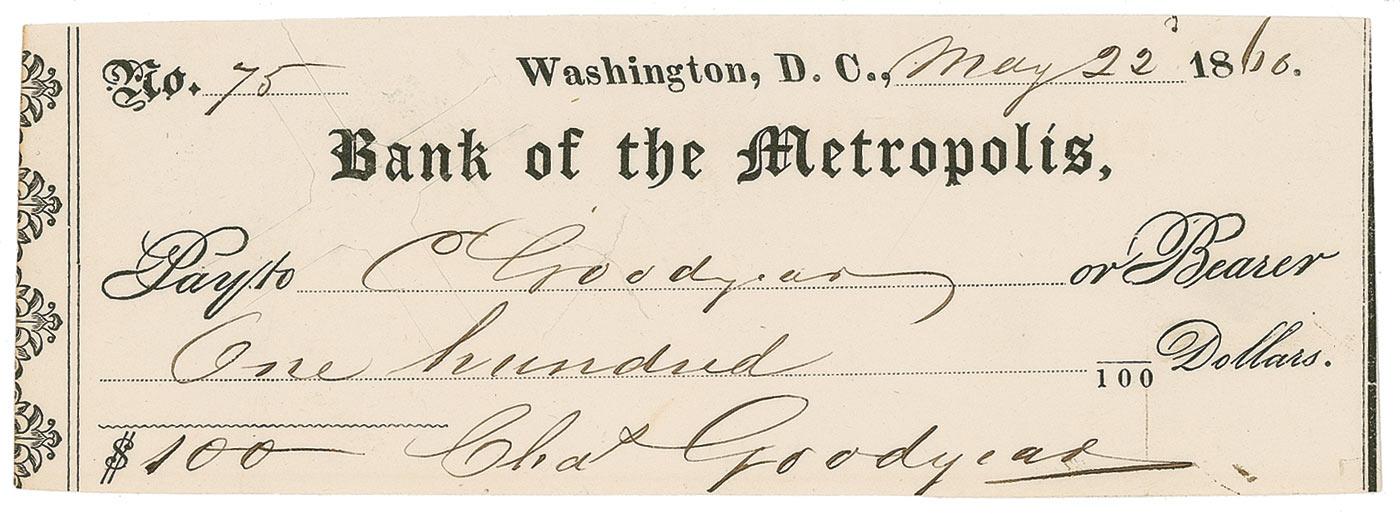 No. 75 Washington, D. C., May 22 1860.
Bank of the Metropolis,
Pay to C Goodyear or Bearer
One hundred 100 Dollars.
$ 100 Chas Goodyear